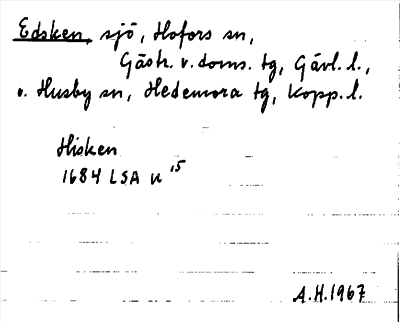 Edsken, sjö, Hofors sn,
Gästr. v. doms. tg, Gävl. l.,
o. Husby sn, Hedemora tg, Kopp. l.
Hisken
1684 LSA U 15
A.H. 1967